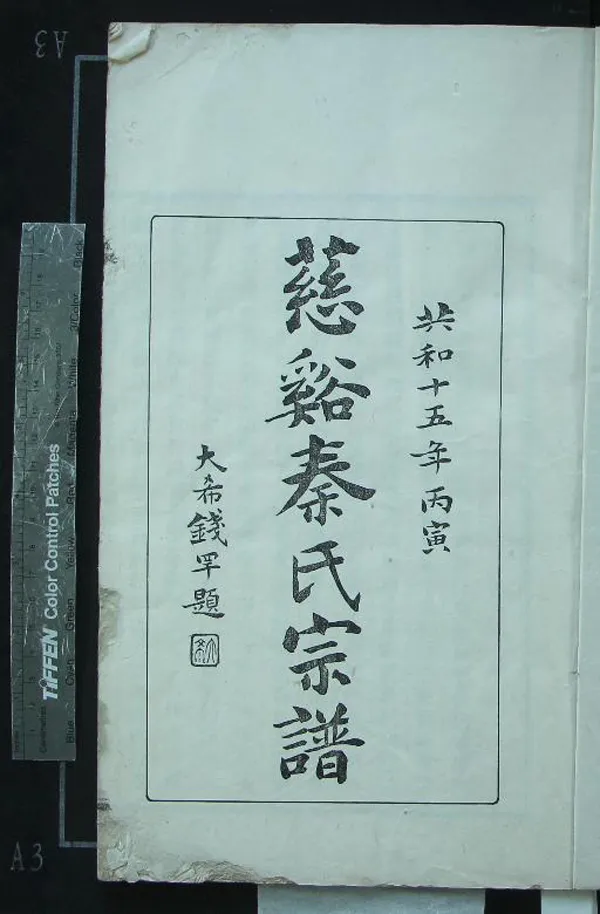 共和十五年丙寅
慈谿秦氏宗譜
大希錢罕題
TIFFEN Color Control Patches
Blue
Cyan
Green
Yellow
Red
Magenta
White
3/Color
Black
A3
A3